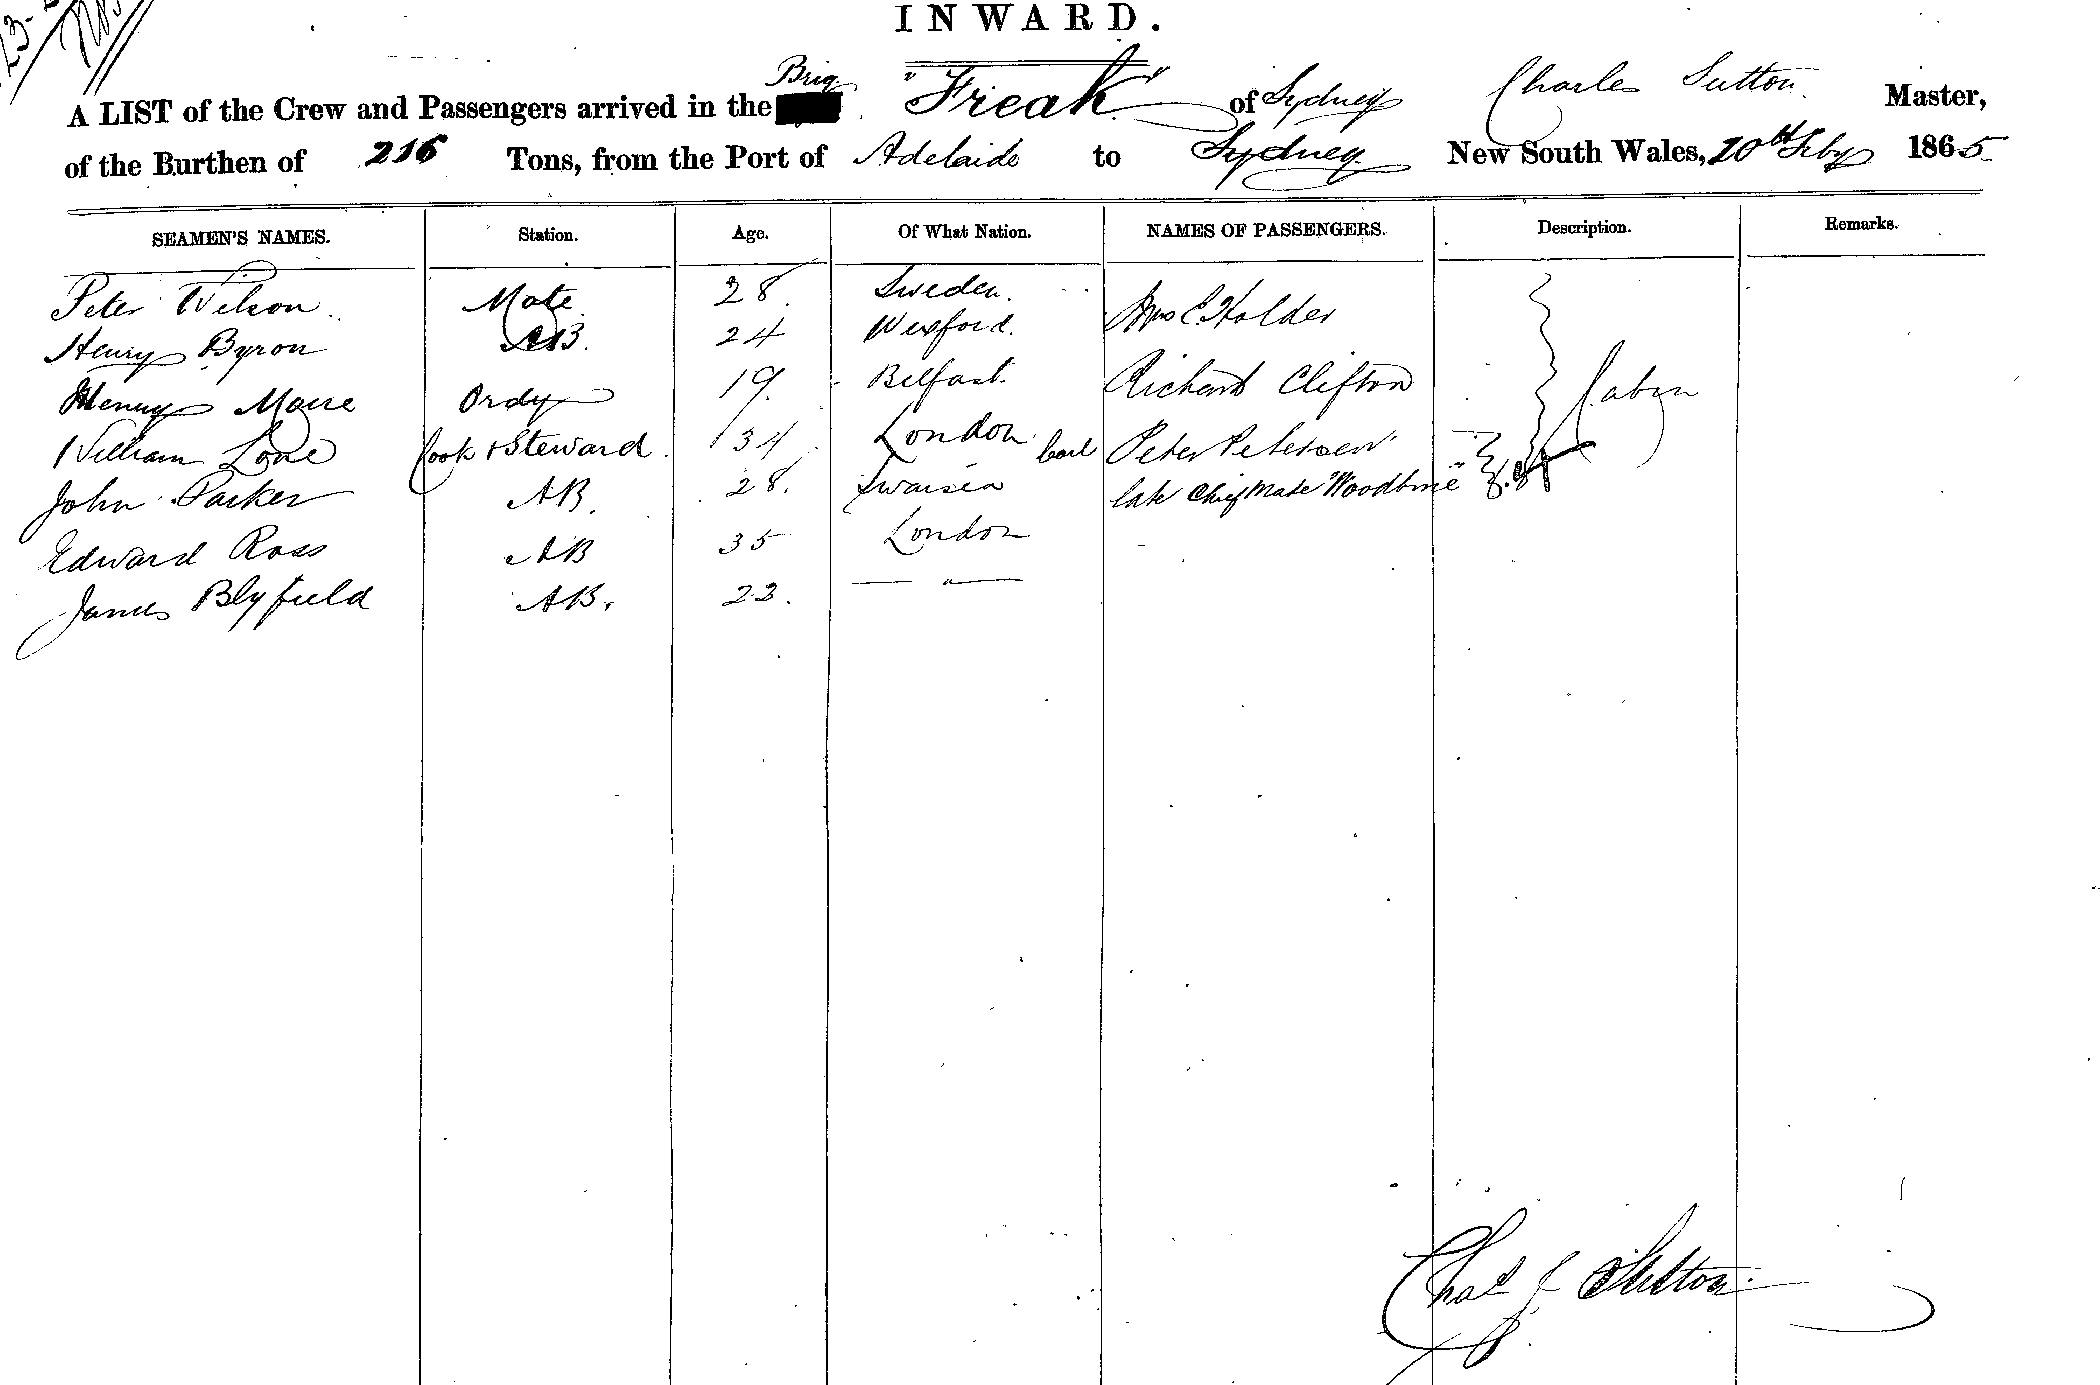 INWARD.
A LIST of the Crew and Passengers arrived in the Brig "Freak" of Sydney Charles Sutton Master,
of the Burthen of 216 Tons, from the Port of Adelaide to Sydney New South Wales, 20th Feby 1865
SEAMEN'S NAMES. Station. Age. Of What Nation. NAMES OF PASSENGERS. Description. Remarks.
Peter Wilson Mate 28 Sweden. Mrs C. Holder
Henry Byron AB. 24 Wexford.
Henry Ordy 19. Belfast. Richard Clifton Cabin
William Cook & Steward 34 London Peter Petersen
John Parker AB. 28. Swansea late Chief Mate "Woodbine"
Edward Ross AB 35 London
James Blyfield AB. 22. — " —
Chas J Sutton